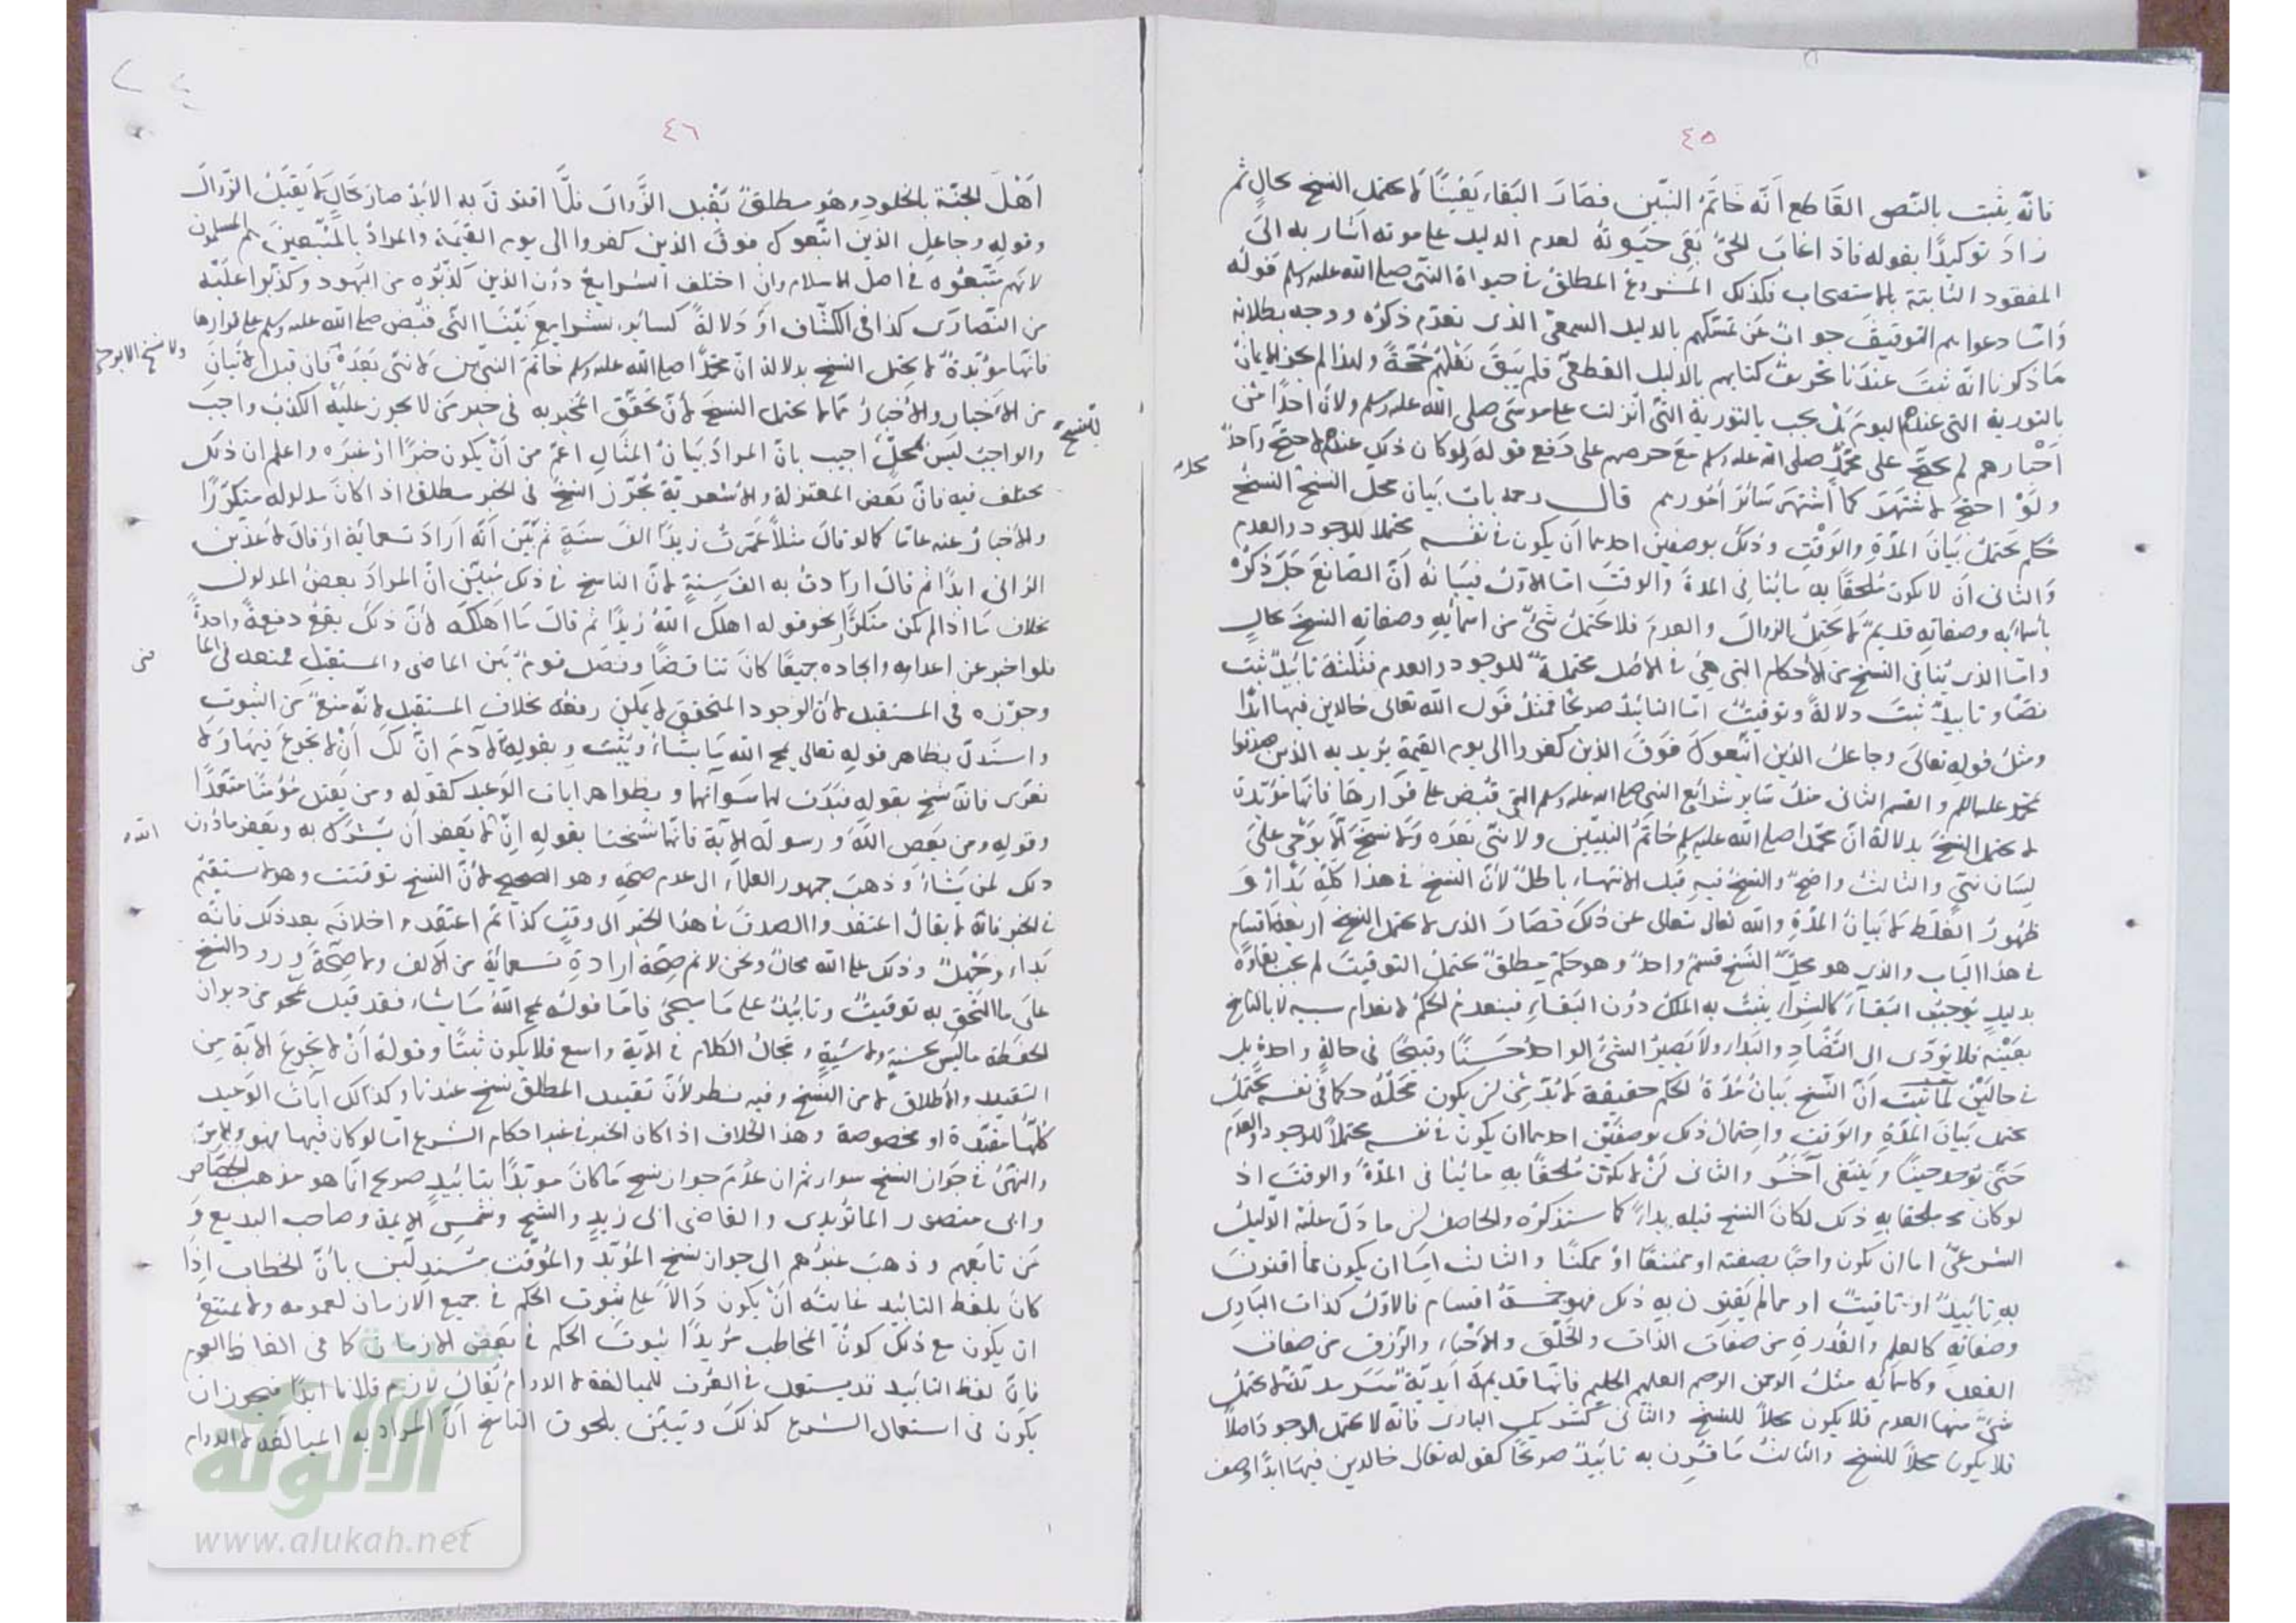 ٤٥
فانه يثبت بالنص القاطع أنه خاتم النبيين فصار البقاء يقينًا لا يحتمل النسخ بحالٍ ثم
زاد توكيدًا بقوله فاذا غاب الحيّ بقي حيوته لعدم الدليل على موته اشار به الى
المفقود الثابتة بالاستصحاب فكذلك المشروع المطلق في حيوة النبي صلى الله عليه وسلم قوله
واما دعواهم التوقيف جواب عن تمسكهم بالدليل السمعي الذي تقدم ذكره ووجه بطلانه
ما ذكرنا انه ثبت عندنا تحريف كتابهم بالدليل القطعي فلم يبق نقلهم حجة ولهذا لم يجز الايمان
بالتورية التي عندهم اليوم بل يجب بالتورية التي انزلت على موسى صلى الله عليه وسلم ولان احدًا من
أحبارهم لم يحتج على محمد صلى الله عليه وسلم مع حرصهم على دفع قوله ولو كان ذلك عندهم لاحتج واحد
ولو احتج لاشتهر كما اشتهر سائر امورهم قال رحمه باب بيان محل النسخ النسخ
حكم يحتمل بيان المدة والوقت وذلك بوصفين احدهما أن يكون في نفسه محتملا للوجود والعدم
والثاني ان لا يكون ملحقا به ما ينافي المدة والوقت اما الاول فبيانه أن الصانع جل ذكره
بأسمائه وصفاته قديم لا يحتمل الزوال والعدم فلا يحتمل شيء من اسمائه وصفاته النسخ بحال
واما الذي ينافي النسخ من الاحكام التي هي في الاصل محتملة للوجود والعدم فثلثة تأبيد ثبت
نصا وتأبيد ثبت دلالة وتوقيت اما التأبيد صريحا فمثل قول الله تعالى خالدين فيها ابدا
ومثل قوله تعالى وجاعل الذين اتبعوك فوق الذين كفروا الى يوم القيمة يريد به الذين صدقوا
بمحمد عليه السلام والقسم الثاني مثل سائر شرائع النبي صلى الله عليه وسلم التي قبض على قرارها فانها مؤبدة
لا يحتمل النسخ بدلالة ان محمدا صلى الله عليه وسلم خاتم النبيين ولا نبي بعده ولا نسخ الا بوحي على
لسان نبي والثالث واضح والنسخ فيه قبل الانتهاء باطل لأن النسخ في هذا كله بداءٌ و
ظهور الغلط لا بيان المدة والله تعالى يتعالى عن ذلك فصار الذي لا يحتمل النسخ اربعة اقسام
في هذا الباب والذي هو محل النسخ قسم واحد وهو حكم مطلق يحتمل التوقيت لم يجب بقاؤه
بدليل يوجب البقاء كالشراء يثبت به الملك دون البقاء فينعدم الحكم لانعدام سببه لا بالناسخ
بعينه فلا يؤدى الى التضاد والبداء ولا يصير الشئ الواحد حسنا وقبيحا في حالة واحدة بل
في حالين لما ثبت أن النسخ بيان مدة الحكم حقيقة لا بد من ان يكون محله حكما في نفسه يحتمل
يحتمل بيان المدة والوقت واحتمال ذلك بوصفين احدهما ان يكون في نفسه محتملا للوجود والعدم
حتى يوجد حينا وينتفى آخر والثاني ان لا يكون ملحقا به ما ينافي المدة والوقت اذ
لو كان ملحقا به ذلك لكان النسخ قبله بداء كما سنذكره والحاصل ان ما دل عليه الدليل
الشرعي اما ان يكون واجبا بصفته او ممتنعا او ممكنا والثالث اما ان يكون مما اقترن
به تأبيد او تأقيت او مما لم يقترن به ذلك فهو خمسة اقسام فالاول كذات البارى
وصفاته كالعلم والقدرة من صفات الذات والخلق والاحياء والرزق من صفات
الفعل وكاسمائه مثل الرحمن الرحيم العليم الحليم فانها قديمة ابدية سرمدية لا يحتمل
شئ منها العدم فلا يكون محلا للنسخ والثاني كشريك البارى فانه لا يحتمل الوجود اصلا
فلا يكون محلا للنسخ والثالث ما قرن به تأبيد صريحا كقوله تعالى خالدين فيها ابدا وصف
٤٦
أهل الجنة بالخلود وهو مطلق يقبل الزوال فلما اقترن به الابد صار بحال لا يقبل الزوال
وقوله وجاعل الذين اتبعوك فوق الذين كفروا الى يوم القيمة والمراد بالمتبعين هم المسلمون
لانهم متبعوه في اصل الاسلام وان اختلف الشرايع دون الذين كذبوه من اليهود وكذبوا عليه
من النصارى كذا في الكشاف او دلالة كسائر شرايع نبينا التي قبض صلى الله عليه وسلم على قرارها
فانها مؤبدة لا يحتمل النسخ بدلالة ان محمدا صلى الله عليه وسلم خاتم النبيين لا نبي بعده فان قيل الاتيان
من الاخبار والاخبار مما لا يحتمل النسخ لأن تحقق المخبر به في خبر من لا يجوز عليه الكذب واجب
والواجب ليس بمحل للنسخ اجيب بان المراد بيان المثال اعم من أن يكون خبرا او غيره واعلم ان ذلك
مختلف فيه فان بعض المعتزلة والاشعرية يجوز النسخ في الخبر مطلقا اذا كان مدلوله متكررا
والاخبار عنه عاما كما لو قال مثلا عمرت زيدا الف سنة ثم بين أنه اراد تسعمائة او قال لاعذبن
الزاني ابدا ثم قال اردت به الف سنة لأن الناسخ في ذلك مبين ان المراد بعض المدلول
بخلاف ما اذا لم يكن متكررا نحو قوله اهلك الله زيدا ثم قال ما اهلكه لأن ذلك يقع دفعة واحدة
فلو اخبر عن اعدامه وايجاده جميعا كان تناقضا وفصل قوم بين الماضي والمستقبل فمنعه في الماضى
وجوزه في المستقبل لأن الوجود المتحقق لا يمكن رفعه بخلاف المستقبل لانه منع من الثبوت
واستدل بظاهر قوله تعالى يمح الله ما يشاء ويثبت وبقوله لآدم ان لك أن لا تجوع فيها ولا
تعرى فانه نسخ بقوله فبدت لهما سوآتهما وبظواهر آيات الوعيد كقوله ومن يقتل مؤمنا متعمدا
وقوله ومن يعص الله ورسوله الآية فانها نسخت بقوله ان الله لا يغفر أن يشرك به ويغفر ما دون
ذلك لمن يشاء وذهب جمهور العلماء الى عدم صحته وهو الصحيح لأن النسخ توقيت وهو لا يستقيم
في الخبر فانه لا يقال اعتقدوا الصدق في هذا الخبر الى وقت كذا ثم اعتقدوا خلافه بعد ذلك فانه
بداء وجهل وذلك على الله محال ونحن لا نم صحة ارادة تسعمائة من الالف ولا صحة ورود النسخ
على ما التحق به توقيت وتأبيد على ما سيجئ فاما قوله يمح الله ما يشاء فقد قيل يمحو من ديوان
الحفظة ما ليس بحسنة ولا سيئة ومجال الكلام في الآية واسع فلا يكون ثبتا وقوله أن لا تجوع الآية من
التقييد والاطلاق لا من النسخ وفيه نظر لأن تقييد المطلق نسخ عندنا وكذلك آيات الوعيد
كلها مقيدة او مخصوصة وهذا الخلاف اذا كان الخبر في غير احكام الشرع اما لو كان فيها فهو والامر
والنهي في جواز النسخ سواء ثم ان عدم جواز نسخ ما كان مؤبدا بتأبيد صريح انما هو مذهب الجصاص
وابى منصور الماتريدى والقاضى ابى زيد والشيخ وشمس الايمة وصاحب البديع و
من تابعهم وذهب غيرهم الى جواز نسخ المؤبد والمؤقت مستدلين بأن الخطاب اذا
كان بلفظ التأبيد غايته أن يكون دالا على ثبوت الحكم في جميع الازمان لعمومه ولا يمتنع
ان يكون مع ذلك كون المخاطب مريدا ثبوت الحكم في بعض الازمان كما في الفاظ العموم
فان لفظ التأبيد قد يستعمل في العرف للمبالغة لا الدوام يقال لازم فلانا ابدا فيجوز ان
يكون في استعمال الشرع كذلك وتبين بلحوق الناسخ ان المراد به المبالغة لا الدوام
الألوكة
www.alukah.net